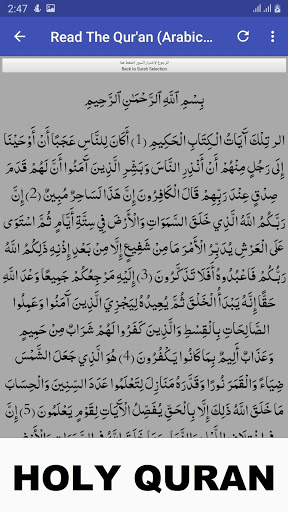 2:47
Read The Qur'an (Arabic...
الرجوع لاختيار السور اضغط هنا
Back to Surah Selection
بِسْمِ ٱللَّهِ ٱلرَّحْمَٰنِ ٱلرَّحِيمِ
الر تِلْكَ آيَاتُ الْكِتَابِ الْحَكِيمِ (1) أَكَانَ لِلنَّاسِ عَجَبًا أَنْ أَوْحَيْنَا
إِلَى رَجُلٍ مِنْهُمْ أَنْ أَنْذِرِ النَّاسَ وَبَشِّرِ الَّذِينَ آمَنُوا أَنَّ لَهُمْ قَدَمَ
صِدْقٍ عِنْدَ رَبِّهِمْ قَالَ الْكَافِرُونَ إِنَّ هَذَا لَسَاحِرٌ مُبِينٌ (2) إِنَّ
رَبَّكُمُ اللَّهُ الَّذِي خَلَقَ السَّمَوَاتِ وَالْأَرْضَ فِي سِتَّةِ أَيَّامٍ ثُمَّ اسْتَوَى
عَلَى الْعَرْشِ يُدَبِّرُ الْأَمْرَ مَا مِنْ شَفِيعٍ إِلَّا مِنْ بَعْدِ إِذْنِهِ ذَلِكُمُ اللَّهُ
رَبُّكُمْ فَاعْبُدُوهُ أَفَلَا تَذَكَّرُونَ (3) إِلَيْهِ مَرْجِعُكُمْ جَمِيعًا وَعْدَ اللَّهِ
حَقًّا إِنَّهُ يَبْدَأُ الْخَلْقَ ثُمَّ يُعِيدُهُ لِيَجْزِيَ الَّذِينَ آمَنُوا وَعَمِلُوا
الصَّالِحَاتِ بِالْقِسْطِ وَالَّذِينَ كَفَرُوا لَهُمْ شَرَابٌ مِنْ حَمِيمٍ
وَعَذَابٌ أَلِيمٌ بِمَا كَانُوا يَكْفُرُونَ (4) هُوَ الَّذِي جَعَلَ الشَّمْسَ
ضِيَاءً وَالْقَمَرَ نُورًا وَقَدَّرَهُ مَنَازِلَ لِتَعْلَمُوا عَدَدَ السِّنِينَ وَالْحِسَابَ
مَا خَلَقَ اللَّهُ ذَلِكَ إِلَّا بِالْحَقِّ يُفَصِّلُ الْآيَاتِ لِقَوْمٍ يَعْلَمُونَ (5) إِنَّ
فِي اخْتِلَافِ اللَّيْلِ وَالنَّهَارِ وَمَا خَلَقَ اللَّهُ فِي السَّمَوَاتِ وَالْأَرْضِ
HOLY QURAN